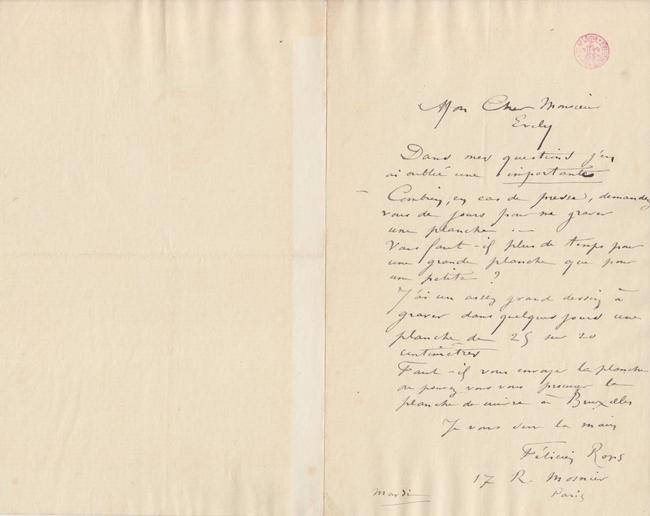 Mon Cher Monsieur
Evely
Dans mes questions j'en
ai oublié une importante
– Combien, en cas de presse, demandez
vous de jours pour me graver
une planche. —
Vous faut-il plus de temps pour
une grande planche que pour
une petite ?
J'ai un assez grand dessin à
graver dans quelques jours une
planche de 25 sur 20
centimètres
Faut-il vous envoyer la planche
ou pouvez vous vous procurer la
planche de cuivre à Bruxelles
Je vous serre la main
Félicien Rops
17 R. Mosnier
Mardi Paris